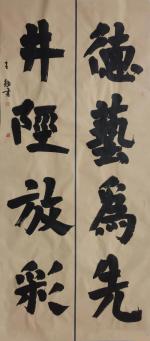 德藝為先
井陘放彩